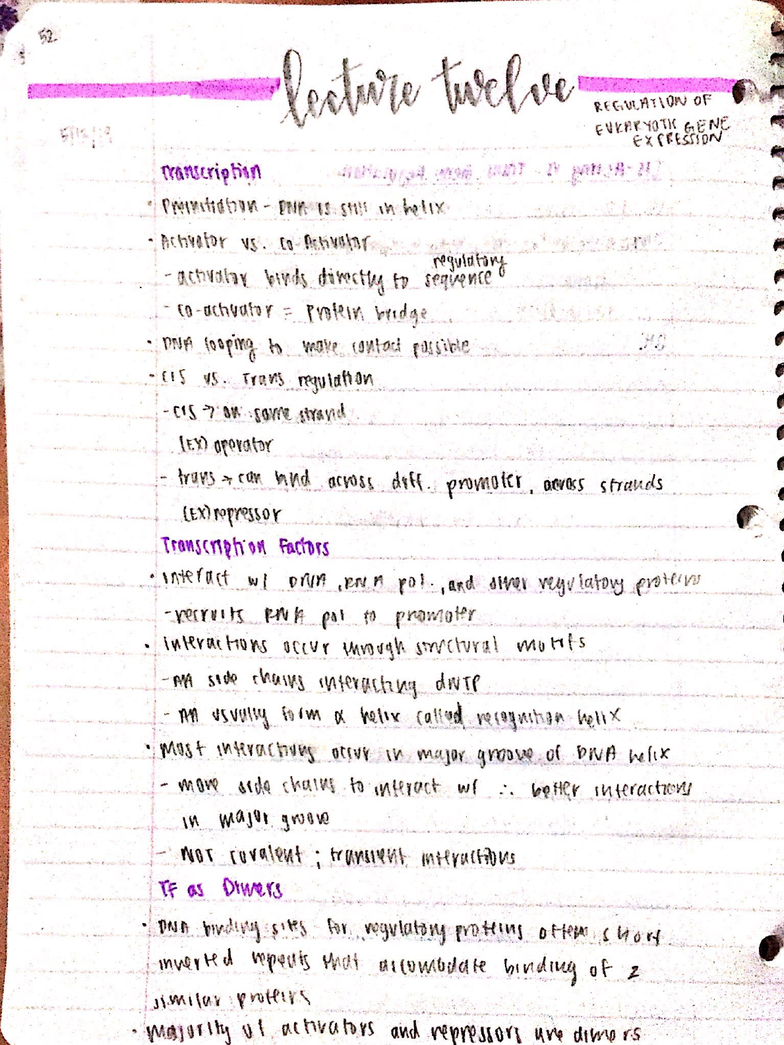 52
lecture twelve
REGULATION OF
EUKARYOTIC GENE
EXPRESSION
Transcription
• Preinitiation - DNA is still in helix
• Activator vs. co-Activator
- activator binds directly to regulatory sequence
- co-activator = protein bridge
• DNA looping to make contact possible
• CIS vs. Trans regulation
- CIS → on same strand
(EX) operator
- trans → can bind across diff. promoter, across strands
(EX) repressor
Transcription Factors
• interact w/ DNA, RNA pol., and other regulatory proteins
- recruits RNA pol to promoter
• interactions occur through structural motifs
- AA side chains interacting dNTP
- AA usually form α helix called recognition helix
• Most interactions occur in major groove of DNA helix
- more side chains to interact w/ ∴ better interactions
in major groove
- NOT covalent ; transient interactions
TF as Dimers
• DNA binding sites for regulatory proteins often short
inverted repeats that accomodate binding of 2
similar proteins
• majority of activators and repressors are dimers